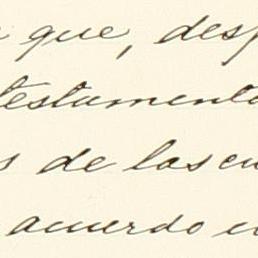 que, desp
testamento
s de las cu
acuerdo